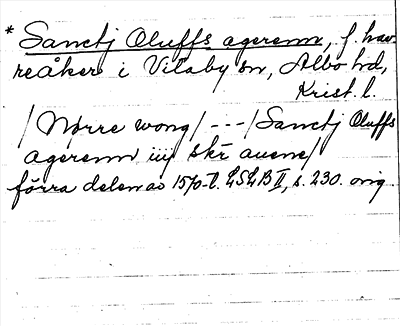 * Sanctj Oluffs agerenn, f. hav-
reåker i Vitaby sn, Albo hd,
Krist. l.
/Nørre wong/ --- /Sanctj Oluffs
agerenn iiij skr auene/
förra delen av 1570-t. LSLB II, s. 230. orig.